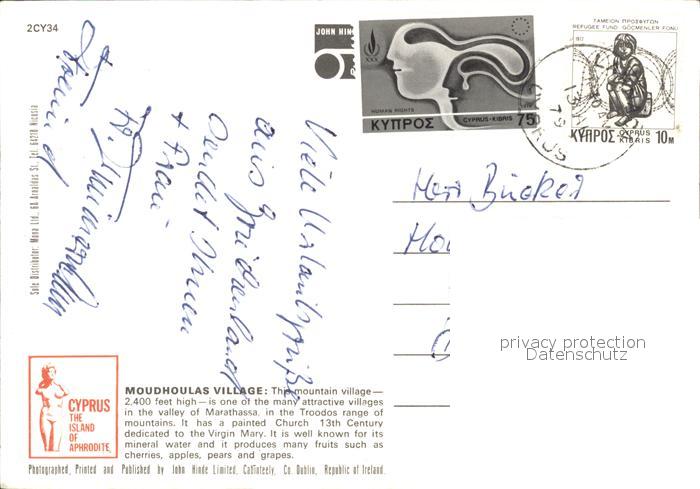 2CY34
JOHN HIN
XXX
HUMAN RIGHTS
1978
ΚΥΠΡΟΣ CYPRUS-KIBRIS 75
ΤΑΜΕΙΟΝ ΠΡΟΣΦΥΓΩΝ
REFUGEE FUND GÖÇMENLER FONU
1977
ΚΥΠΡΟΣ CYPRUS KIBRIS 10M
CYPRUS
79
Viele Urlaubsgrüße
aus Griechenland
sendet Ihnen
+ Frau
Herr Bücker
privacy protection
Datenschutz
Sole Distributor: Mona Ltd., 6A Arnaldas St. Tel. 64218 Nicosia
CYPRUS
THE
ISLAND
OF
APHRODITE.
MOUDHOULAS VILLAGE: This mountain village—
2,400 feet high—is one of the many attractive villages
in the valley of Marathassa, in the Troodos range of
mountains. It has a painted Church 13th Century
dedicated to the Virgin Mary. It is well known for its
mineral water and it produces many fruits such as
cherries, apples, pears and grapes.
Photographed, Printed and Published by John Hinde Limited, Cabinteely, Co. Dublin, Republic of Ireland.